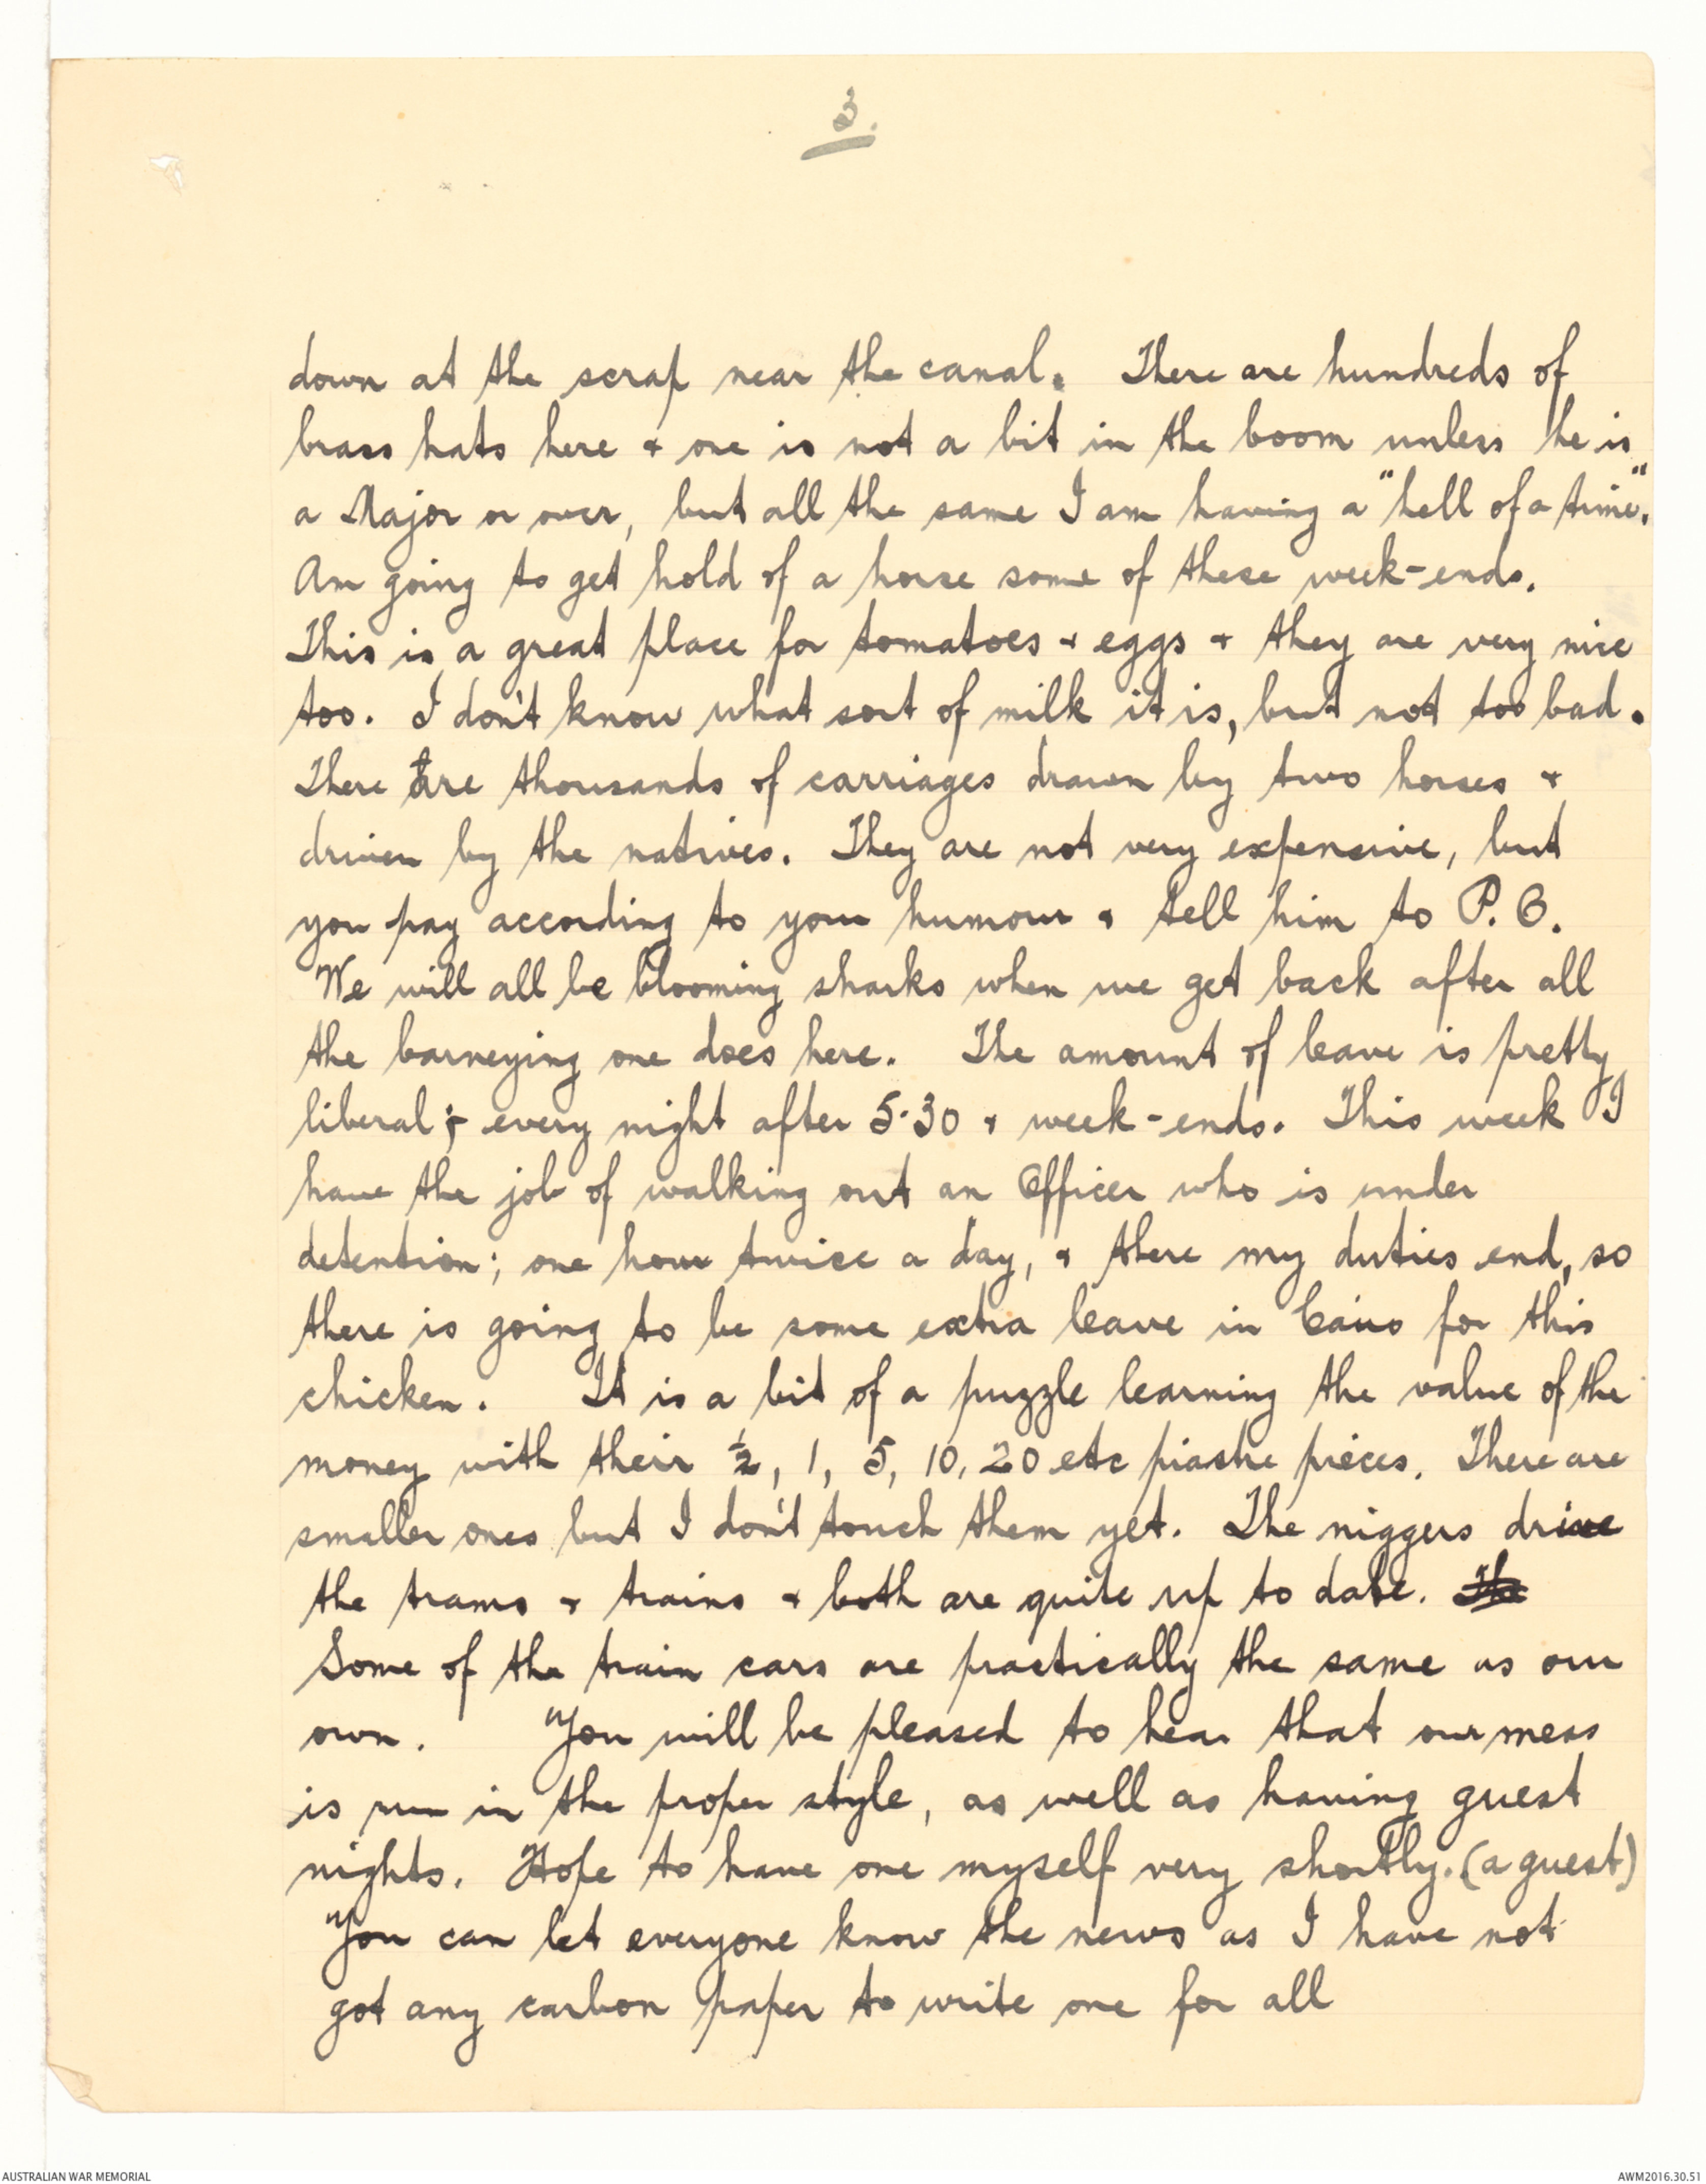 3.
down at the scrap near the canal. There are hundreds of
brass hats here & one is not a bit in the boom unless he is
a Major or over, but all the same I am having a "hell of a time".
Am going to get hold of a horse some of these week-ends.
This is a great place for tomatoes & eggs & they are very nice
too. I don't know what sort of milk it is, but not too bad.
There are thousands of carriages drawn by two horses &
driven by the natives. They are not very expensive, but
you pay according to your humour & tell him to P. O.
We will all be blooming sharks when we get back after all
the barneying one does here. The amount of leave is pretty
liberal;- every night after 5.30 & week-ends. This week I
have the job of walking out an Officer who is under
detention; one hour twice a day, & there my duties end, so
there is going to be some extra leave in Cairo for this
chicken. It is a bit of a puzzle learning the value of the
money with their ½, 1, 5, 10, 20 etc piastre pieces. There are
smaller ones but I don't touch them yet. The niggers drive
the trams & trains & both are quite up to date. The
Some of the train cars are practically the same as our
own. You will be pleased to hear that our mess
is run in the proper style, as well as having guest
nights. Hope to have one myself very shortly. (a guest)
You can let everyone know the news as I have not
got any carbon paper to write one for all
AUSTRALIAN WAR MEMORIAL
AWM2016.30.51